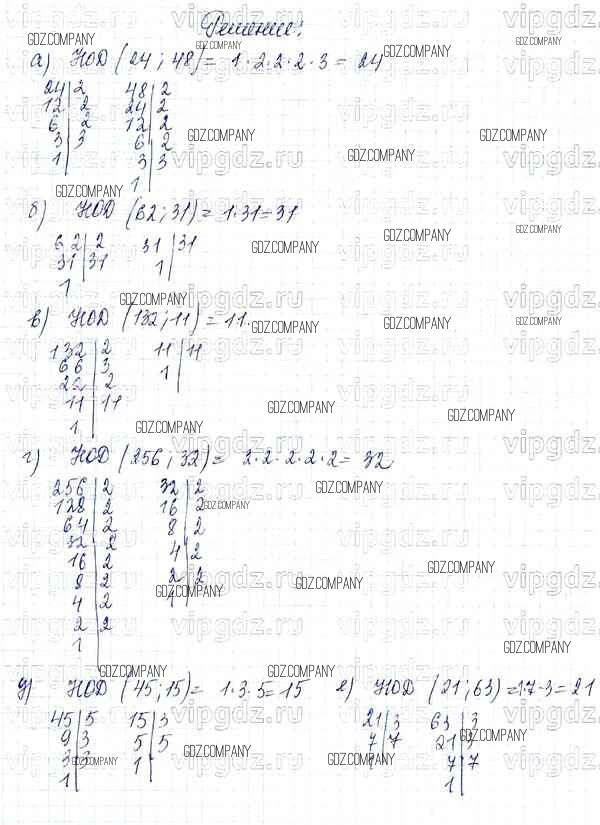 Решение:
а) НОД (24; 48) = 1·2·2·2·3 = 24
24|2 48|2
12|2 24|2
6|2 12|2
3|3 6|2
1| 3|3
1|
б) НОД (62; 31) = 1·31 = 31
62|2 31|31
31|31 1|
1|
в) НОД (132; 11) = 11.
132|2 11|11
66|3 1|
22|2
11|11
1|
г) НОД (256; 32) = 2·2·2·2·2 = 32
256|2 32|2
128|2 16|2
64|2 8|2
32|2 4|2
16|2 2|2
8|2 1|
4|2
2|2
1|
д) НОД (45; 15) = 1·3·5 = 15 е) НОД (21; 63) = 1·7·3 = 21
45|5 15|3 21|3 63|3
9|3 5|5 7|7 21|3
3|3 1| 1| 7|7
1| 1|
GDZ.COMPANY
vipgdz.ru